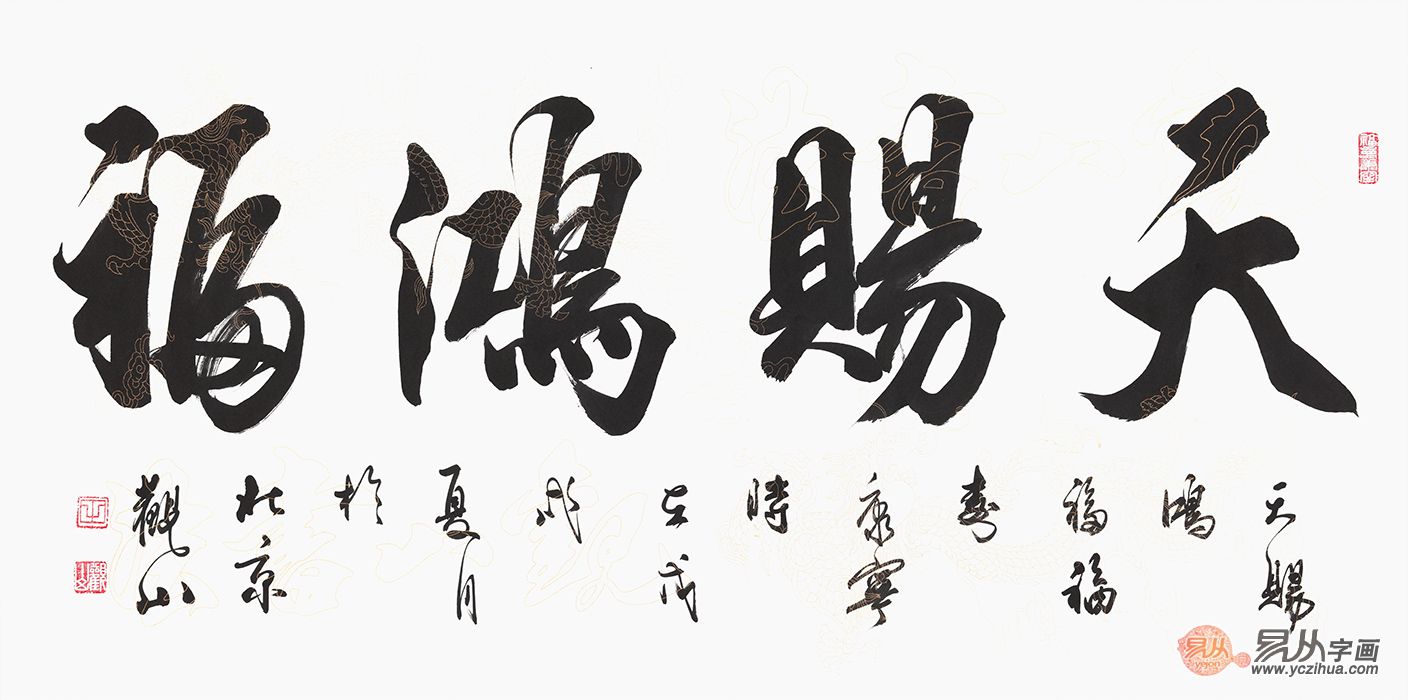 天賜鴻福
天賜
鴻
福福
壽
康寧
時
在戊
戌
夏月
於
北京
觀山
易从
yejon
易从字画
www.yczihua.com